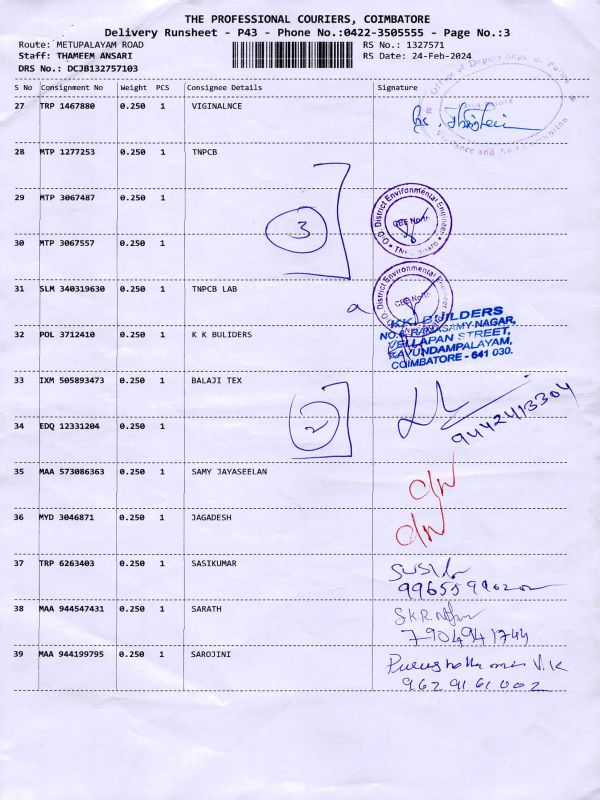 THE PROFESSIONAL COURIERS, COIMBATORE
Delivery Runsheet - P43 - Phone No.:0422-3505555 - Page No.:3
Route: METUPALAYAM ROAD RS No.: 1327571
Staff: THAMEEM ANSARI RS Date: 24-Feb-2024
DRS No.: DCJB132757103
S No Consignment No Weight PCS Consignee Details Signature
27 TRP 1467880 0.250 1 VIGINALNCE
28 MTP 1277253 0.250 1 TNPCB
29 MTP 3067487 0.250 1
District Environmental Engineer
CBE North
3
30 MTP 3067557 0.250 1
31 SLM 340319630 0.250 1 TNPCB LAB
District Environmental Engineer
CBE North
a
K.K. BUILDERS
NO.6, RAMASAMY NAGAR,
VELLAPAN STREET,
KAVUNDAMPALAYAM,
COIMBATORE - 641 030.
32 POL 3712410 0.250 1 K K BULIDERS
33 IXM 505893473 0.250 1 BALAJI TEX
9442413304
34 EDQ 12331204 0.250 1
2
35 MAA 573086363 0.250 1 SAMY JAYASEELAN
36 MYD 3046871 0.250 1 JAGADESH
37 TRP 6263403 0.250 1 SASIKUMAR
38 MAA 944547431 0.250 1 SARATH
7904941744
39 MAA 944199795 0.250 1 SAROJINI
9629161002